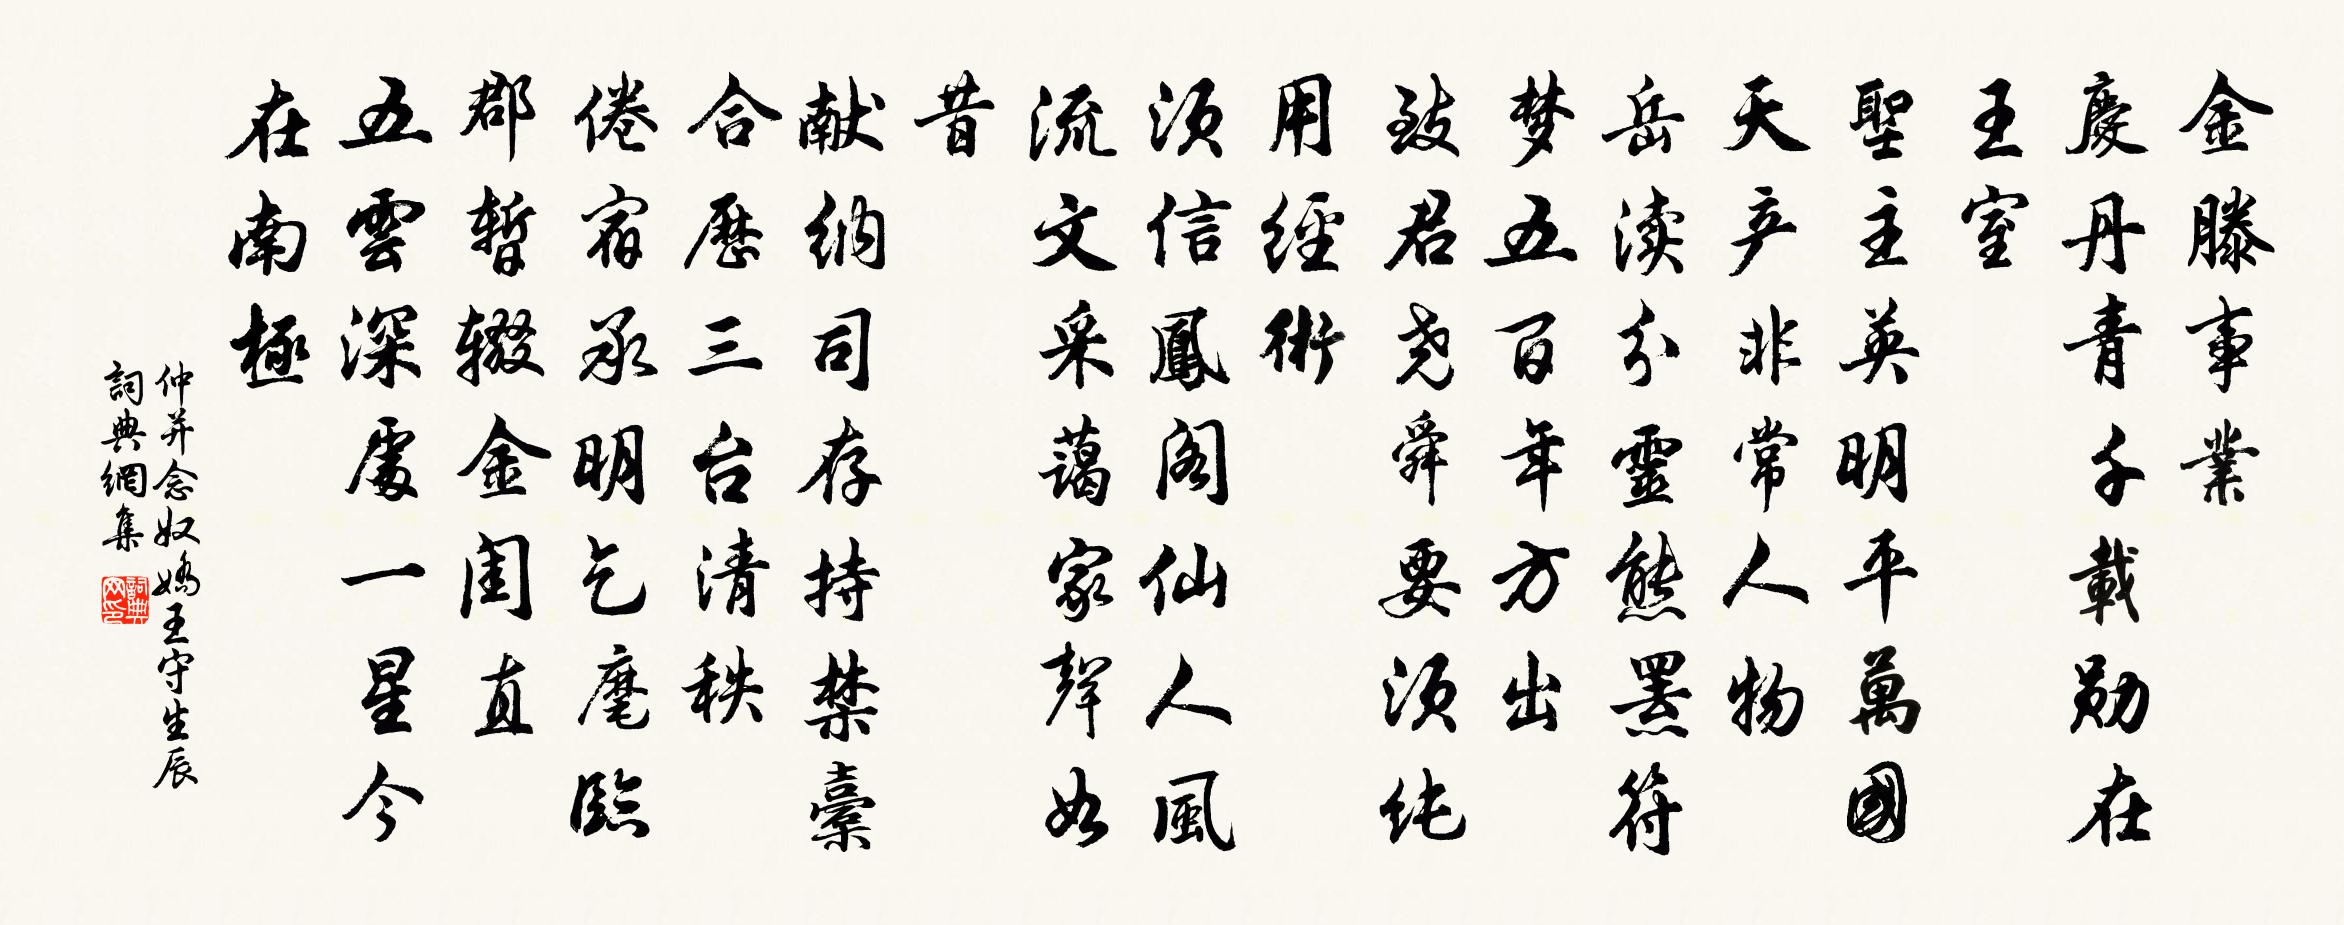 金滕事業
慶丹青千載勋在
王室
聖主英明平萬國
天产非常人物
岳渎分靈熊羆符
梦五百年方出
致君尧舜要须纯
用經術
须信鳳阁仙人風
流文采蔼家聲如
昔
献纳司存持禁橐
合歷三台清秩
倦宿承明乞麾臨
郡暂辍金闺直
五雲深處一星今
在南極
仲并念奴嬌王守生辰
詞典網集
詞典網印